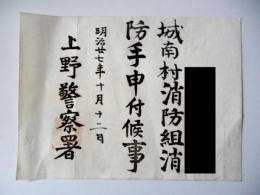 城南村消防組消
防手申付候事
明治廿七年十月十二日
上野警察署